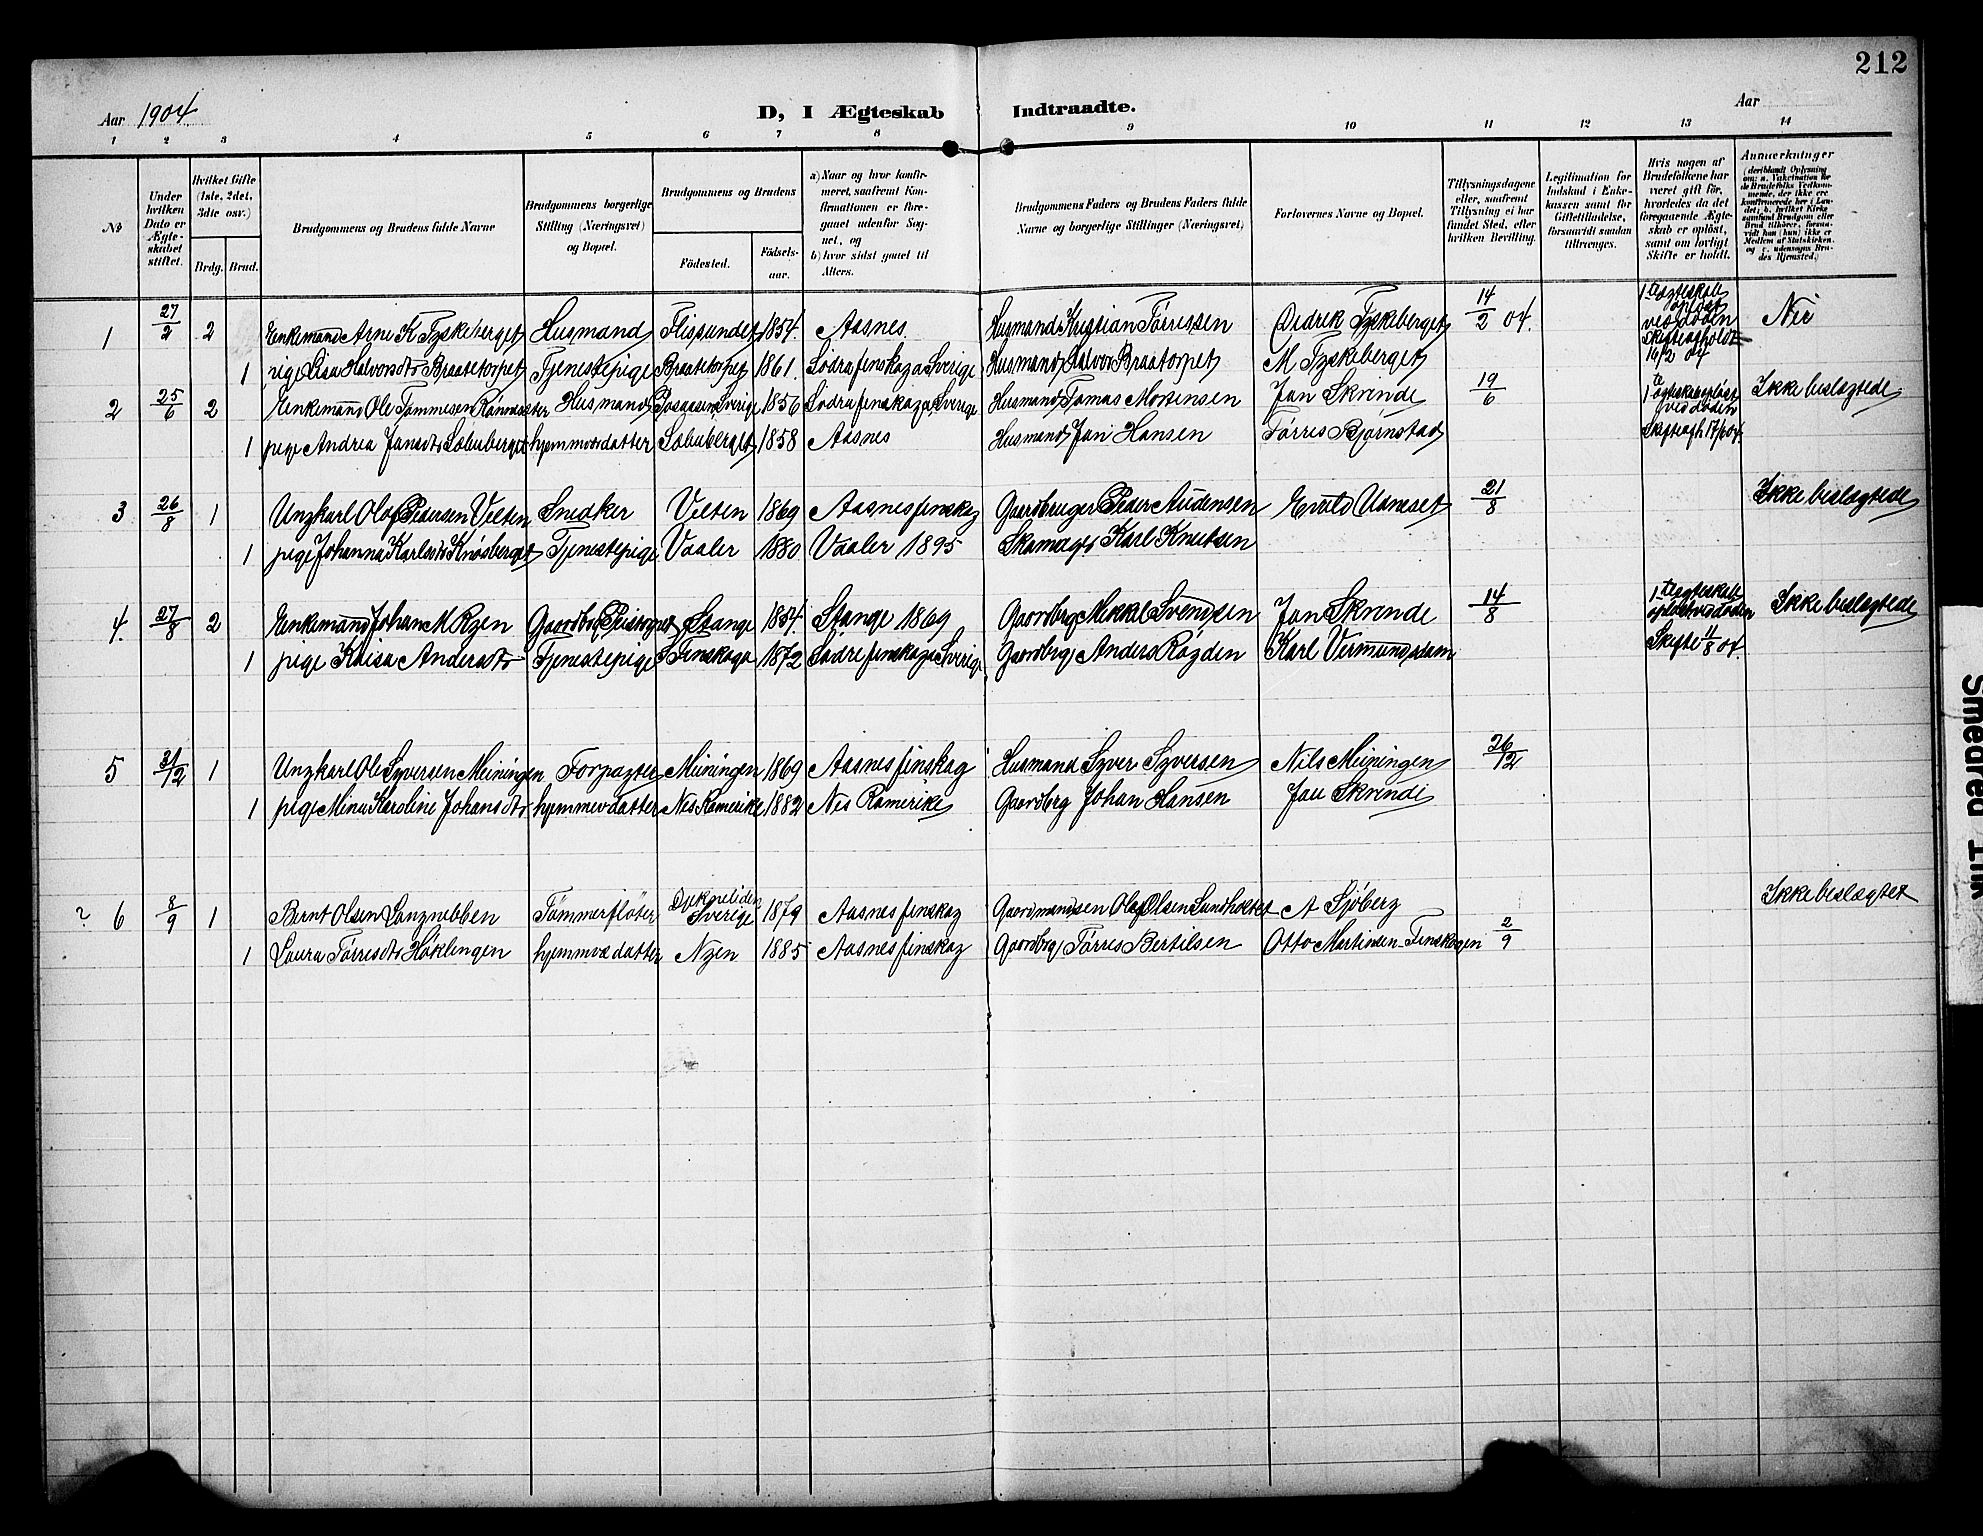 212
Aar 1904
D, I Ægteskab Indtraadte.
Aar
1 2 3 4 5 6 7 8 9 10 11 12 13 14
No
Under hvilken Dato er Ægteskabet stiftet.
Hvilket Gifte (1ste, 2det, 3die osv.)
Brdg. Brud.
Brudgommens og Brudens fulde Navne
Brudgommens borgerlige Stilling (Næringsvei) og Bopæl.
Brudgommens og Brudens
Fødested. Fødselsaar.
a) Naar og hvor konfirmeret, saafremt Konfirmationen er foregaaet udenfor Sognet, og
b) hvor sidst gaaet til Alters.
Brudgommens Faders og Brudens Faders fulde Navne og borgerlige Stillinger (Næringsvei)
Forlovernes Navne og Bopæl.
Tillysningsdagene eller, saafremt Tillysning ei har fundet Sted, efter hvilken Bevilling.
Legitimation for Indskud i Enkekassen samt for Giftetilladelse, forsaavidt saadan tiltrænges.
Hvis nogen af Brudefolkene har været gift før, hvorledes da det foregaaende Ægteskab er opløst, samt om lovligt Skifte er holdt.
Anmerkninger
1 27/2 2 Enkemand Arne K Tyskeberget Husmand Flissundet 1854. Aasnes. Husmand Kristian Tørressen Didrik Tyskeberget 14/2 04. 1ste Ægteskab opløst ved døden Nei
1 pige Lisa Halvorsdtr Braatetorpet Tjenestepige Braatetorpet 1861. Södra finskoga Sverige Husmand Halvor Braatorpet M Tyskeberget Skifte afholdt 16/2 04
2 25/6 2 Enkemand Ole Tommesen Husmand Sverige 1856 Södra finskoga, Sverige Husmand Tomas Mortensen Jan Skrinde 19/6 1te ægteskab opløst ved døden Ikke beslægtede
1 pige Andrea Jansdtr hjemmevdatter 1858 Aasnes Husmand Jan Hansen Tørres Bjørnstad Skifte afh 17/6 04.
3 26/8 1 Ungkarl Olof Pedersen Velten Snedker Velten 1869 Aasnes finskog Gaardbruger Peder Audensen Evald 21/8 Ikke beslægtede
1 pige Johanna Karlsdtr Knøsberget Tjenestepige Vaaler 1880 Vaaler 1895 Skomager Karl Knutsen
4. 27/8 2 Enkemand Johan M Rzen Gaardbr Stange 1854. Stange 1869 Gaardbrg Mikkel Svendsen Jan Skrinde 14/8 1ste Ægteskab opløst ved døden Ikke beslægtede
1 pige Kaisa Andersdtr Tjenestepige S Finskoga 1872 Södre finskoga Sverige Gaardbrg Anders Røgden Karl Skifte 1/8 04.
5 31/12 1 Ungkarl Ole Syversen Meiningen Forpagter Meiningen 1869 Aasnes finskog Husmand Syver Syversen Nils Meiningen 26/12
1 pige Mina Karoline Johansdtr hjemmevdatter Nes Romerike 1882 Nes Romerike Gaardbrg Johan Hansen Jan Skrindi
? 6 8/9 1 Bernt Olsen Langnebben Tømmerfløter Sverige 1879 Aasnes finskog Olof Olsen Sundholtet A Sjöberg Ikke beslægtet
1 Laura Tørresdtr Høklingen hjemmevdatter Nzen 1885 Aasnes finskog Gaardbrg Tørres Bertilsen Otto Martinsen Finskogen 2/9